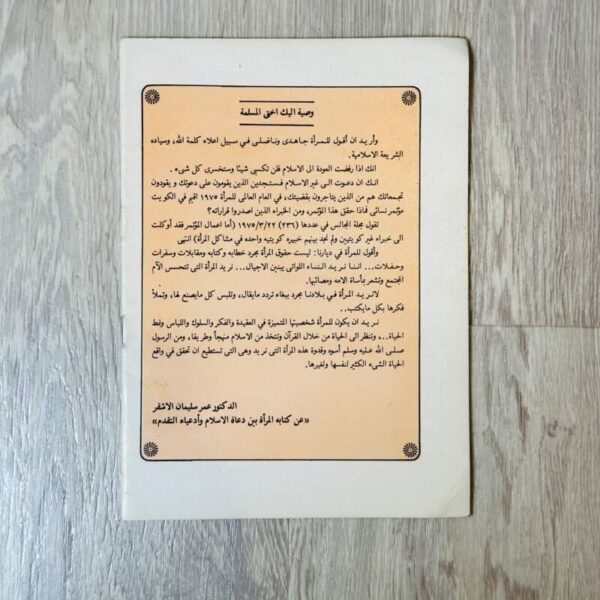 وصية اليك اختى المسلمة
وأريد ان أقول للمرأة جاهدى وناضلى في سبيل اعلاء كلمة الله، وسياده
الشريعة الاسلامية.
انك اذا رفضت العودة الى الاسلام فلن تكسبى شيئا وستخسرى كل شىء.
انك ان دعوت الى غير الاسلام فستجدين الذين يقومون على دعوتك و يقودون
تجمعاتك هم من الذين يتاجرون بقضيتك، في العام العالمى للمرأة ١٩٧٥ اقيم في الكويت
مؤتمر نسائى فماذا حقق هذا المؤتمر، ومن الخبراء الذين اصدروا قراراته؟
تقول مجلة المجالس في عددها (٢٣٦) ١٩٧٥/٣/٢٢ (أما اعمال المؤتمر فقد أوكلت
الى خبراء غير كويتيين ولم نجد بينهم خبيره كويتيه واحده في مشاكل المرأة) انتهى
وأقول للمرأة في ديارنا: ليست حقوق المرأة مجرد خطابه وكتابه ومقابلات وسفرات
وحفلات... اننا نريد النساء اللواتى يبنين الاجيال... نريد المرأة التى تتحسس الآم
المجتمع وتشعر بمأساة الامه ومصائبها.
لانريد المرأة في بلادنا مجرد ببغاء تردد مايقال، وتلبس كل مايصنع لها، وتملأ
فكرها بكل مايكتب..
نريد ان يكون للمرأة شخصيتها المتميزة في العقيدة والفكر والسلوك واللباس ونمط
الحياة... وتنظر الى الحياة من خلال القرآن وتتخذ من الاسلام منهجاً وطريقا، ومن الرسول
صلى الله عليه وسلم أسوه وقدوة هذه المرأة التى نريد وهى التى تستطيع ان تحقق في واقع
الحياة الشىء الكثير لنفسها ولغيرها.
الدكتور عمر سليمان الاشقر
«عن كتابه المرأة بين دعاة الاسلام وأدعياء التقدم»